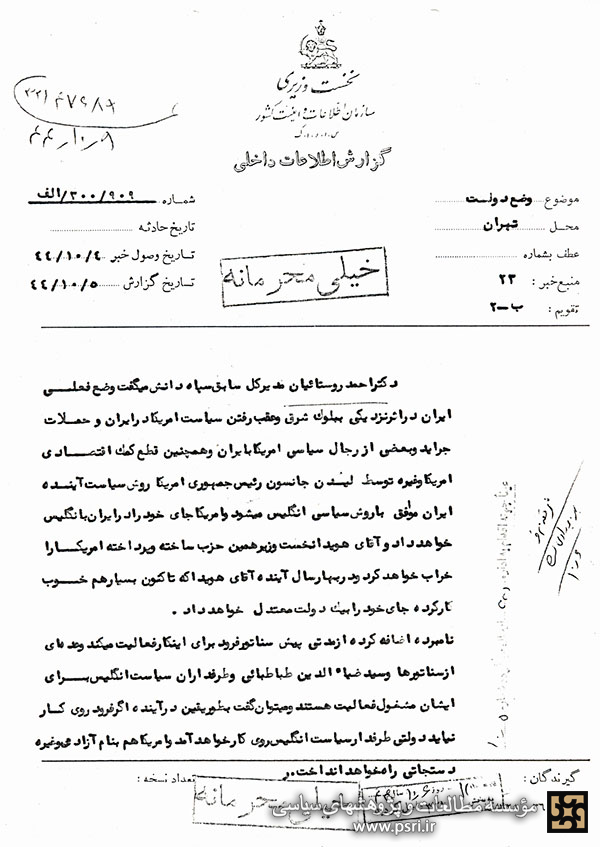 نخست وزیری
سازمان اطلاعات و امنیت کشور
س.ا.و.ا.ک
گزارش اطلاعات داخلی
موضوع وضع دولت
محل تهران
عطف بشماره
منبع خبر : ۲۳
تقویم : ب-۲
شماره ۳۰۰/۹۰۹/الف
تاریخ حادثه
تاریخ وصول خبر ۴۴/۱۰/۴
تاریخ گزارش ۴۴/۱۰/۵
خیلی محرمانه
دکتر احمد روستائیان مدیرکل سابق سپاه دانش میگفت وضع فعلی
ایران در اثر نزدیکی ببلوک شرق و عقب رفتن سیاست امریکا در ایران و حملات
جراید و بعضی از رجال سیاسی امریکا بایران و همچنین قطع کمک اقتصادی
امریکا وغیره توسط لیندن جانسون رئیس جمهوری امریکا روش سیاست آینده
ایران موافق باروش سیاسی انگلیس میشود و امریکا جای خود را در ایران بانگلیس
خواهد داد و آقای هویدا نخست وزیر همین حزب ساخته و پرداخته امریکا را
خراب خواهد کرد ودر بهار سال آینده آقای هویدا که تاکنون بسیار هم خوب
کار کرده جای خود را بیک دولت معتدل خواهد داد .
نامبرده اضافه کرده از مدتی پیش سناتور فرود برای اینکار فعالیت میکند وعده ای
از سناتورها وسید ضیاء الدین طباطبائی وطرفداران سیاست انگلیس برای
ایشان مشغول فعالیت هستند ومیتوان گفت بطور یقین در آینده اگر فرود روی کار
نیاید دولتی طرفدار سیاست انگلیس روی کار خواهد آمد وامریکا هم بنام آزادی وغیره
دستجاتی راه خواهد انداخت.
گیرندگان :
تعداد نسخه :
خیلی محرمانه
مؤسسه مطالعات و پژوهشهای سیاسی
www.psri.ir